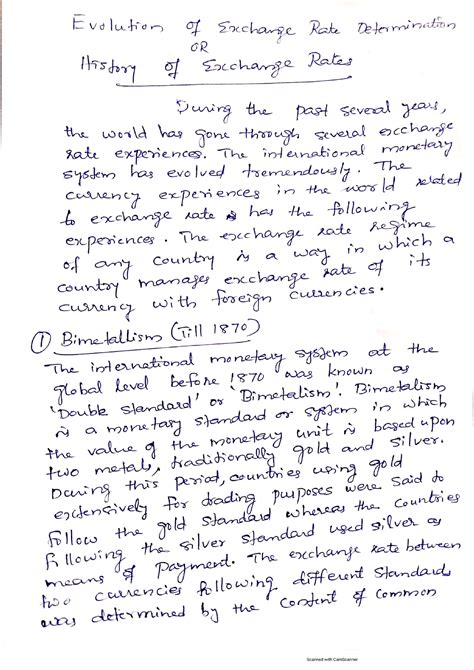 Evolution of Exchange Rate Determination
OR
History of Exchange Rates
During the past several years,
the world has gone through several exchange
rate experiences. The international monetary
system has evolved tremendously. The
currency experiences in the world related
to exchange rate has the following
experiences. The exchange rate regime
of any country is a way in which a
country manages exchange rate of its
currency with foreign currencies.
① Bimetallism (Till 1870)
The international monetary system at the
global level before 1870 was known as
'Double Standard' or 'Bimetalism'. Bimetalism
is a monetary standard or system in which
the value of the monetary unit is based upon
two metals, traditionally gold and silver.
During this period, countries using gold
extensively for trading purposes were said to
follow the gold standard whereas the countries
following the silver standard used silver as
means of payment. The exchange rate between
two currencies following different standards
was determined by the content of common
Scanned with CamScanner